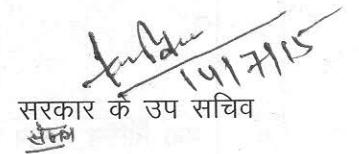 14/7/15
सरकार के उप सचिव